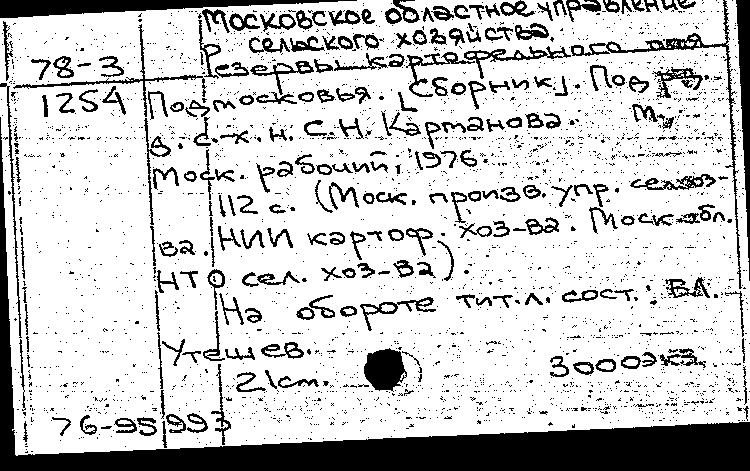 Московское областное управление
сельского хозяйства.
78-3 Резервы картофельного поля
1254 Подмосковья. [Сборник]. Под ред.
д. с.-х. н. С.Н. Картанова. М.,
Моск. рабочий, 1976.
112 с. (Моск. произв. упр. сел.хоз-
ва. НИИ картоф. хоз-ва. Моск. обл.
НТО сел. хоз-ва).
На обороте тит. л. сост.: В.А.
Утешев.
21 cm. 3000экз.
76-95993